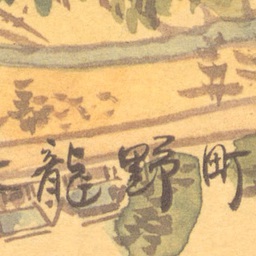 龍野町